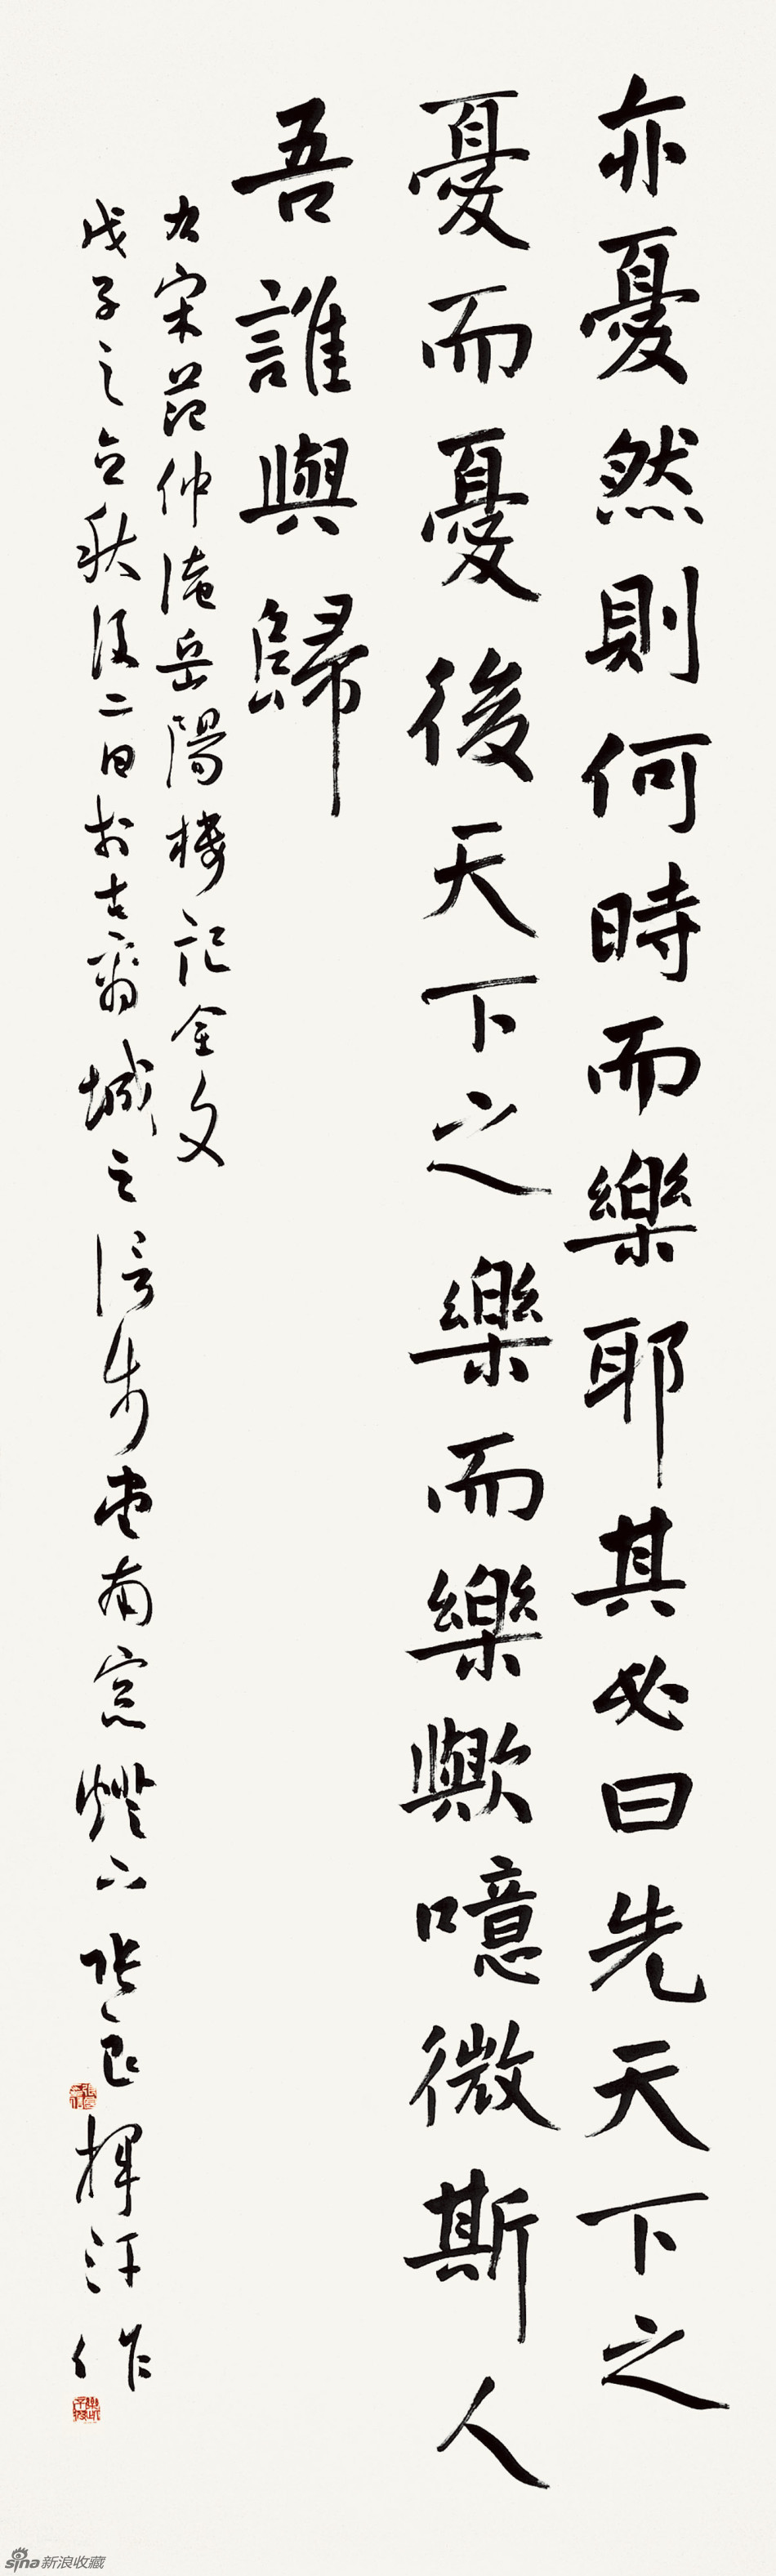 亦憂然則何時而樂耶其必曰先天下之
憂而憂後天下之樂而樂歟噫微斯人
吾誰與歸
右宋范仲淹岳陽樓記全文
戊子之立秋後二日於古翕城之
南窗燈下張良揮汗作
sina新浪收藏